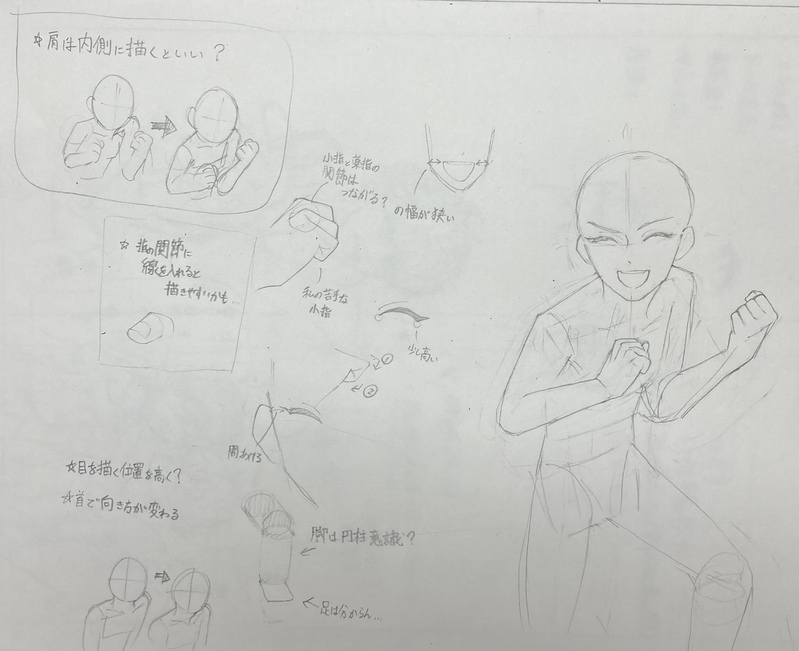 ☆肩は内側に描くといい？
小指と薬指の
関節は
つながる？
の幅が狭い
☆ 指の関節に
線を入れると
描きやすいかも…
私の苦手な
小指
少し高い
①
②
間あける
☆目を描く位置を高く？
☆首で向き方が変わる
脚は円柱意識？
足は分からん…